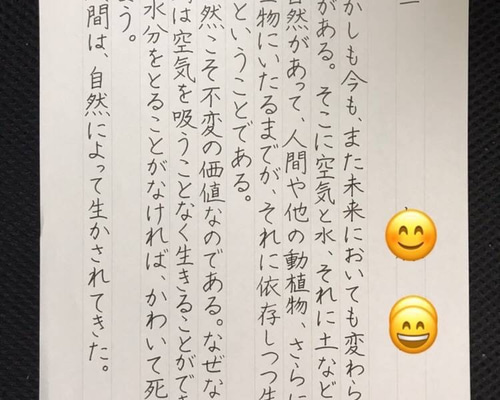 かしも今も、また未来においても変わら
がある。そこに空気と水、それに土など
自然があって、人間や他の動植物、さらに
生物にいたるまでが、それに依存しつつ生
ということである。
然こそ不変の価値なのである。なぜな
は空気を吸うことなく生きることができ
水分をとることがなければ、かわいて死
う。
間は、自然によって生かされてきた。